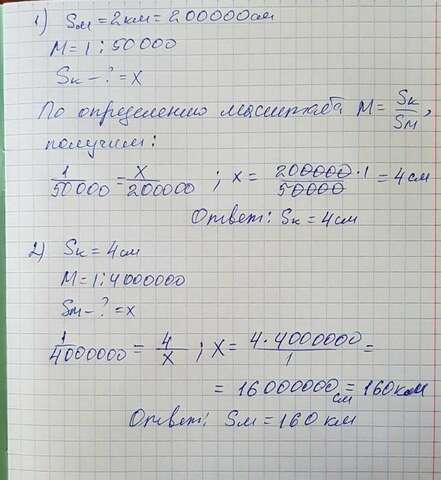 1) Sм = 2км = 200000см
M = 1 : 50000
Sк - ? = x
По определению масштаба M = Sк/Sм,
получим:
1/50000 = x/200000 ; x = 200000·1/50000 = 4см
Ответ: Sк = 4см
2) Sк = 4см
M = 1 : 4000000
Sм - ? = x
1/4000000 = 4/x ; x = 4·4000000/1 =
= 16000000 см = 160км
Ответ: Sм = 160 км